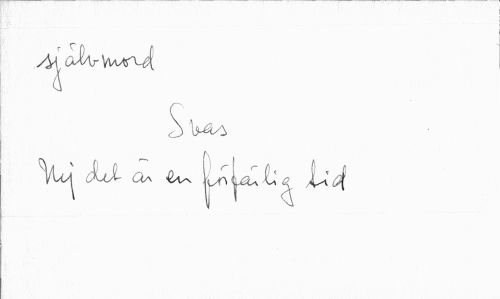 självmord
Svas
Nij det är en förfärlig tid